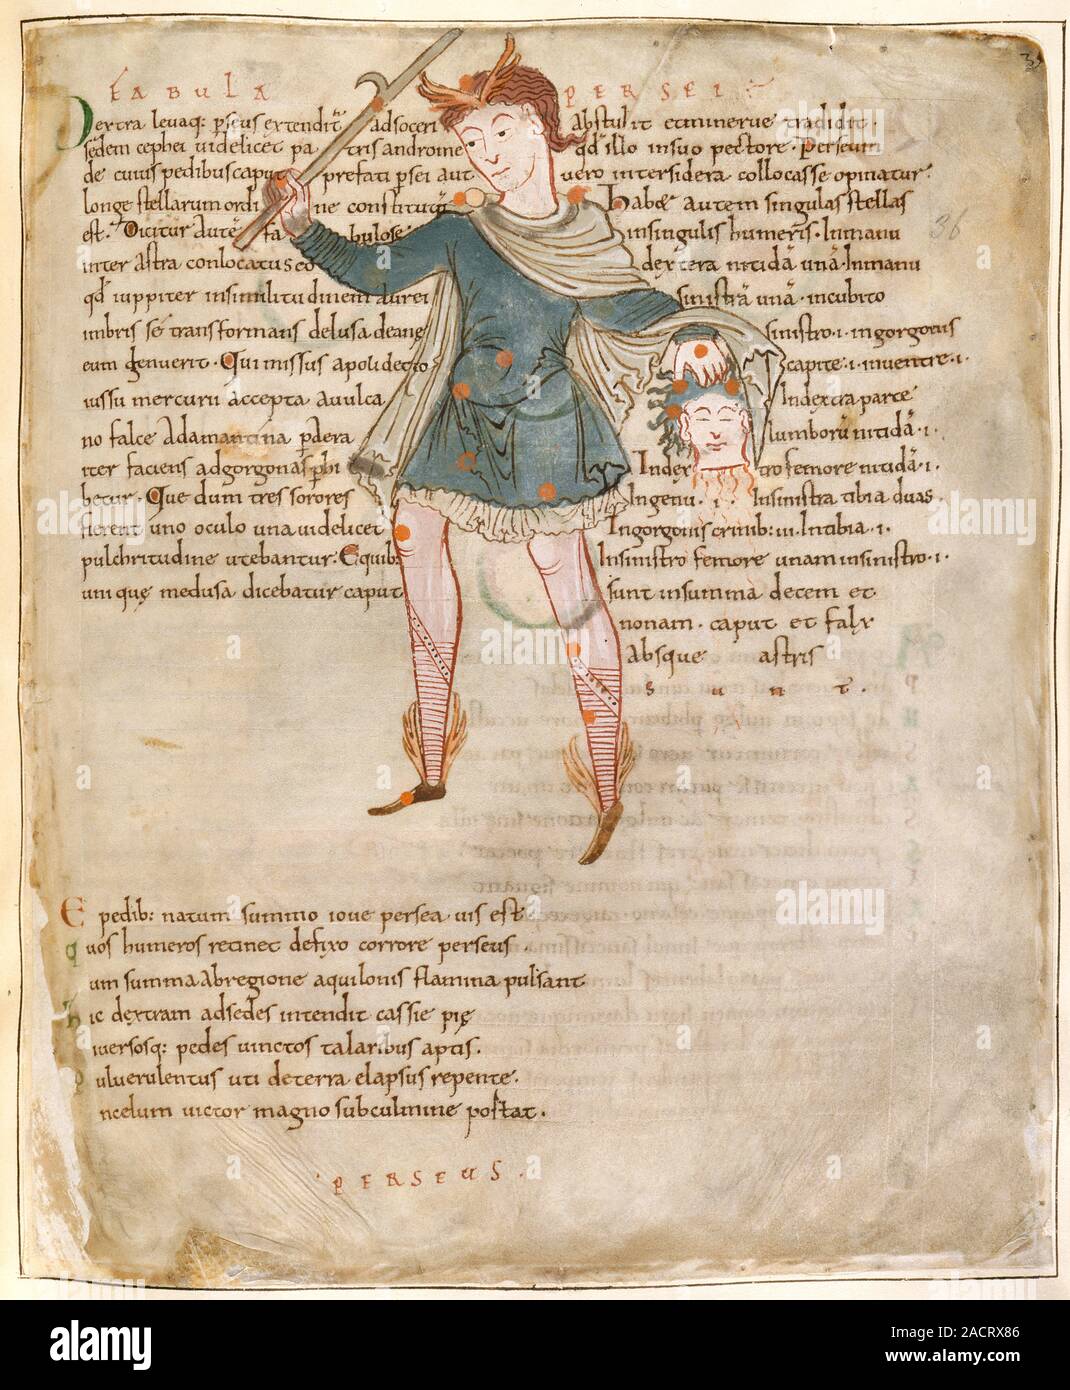 FABULA PERSEI
Dextra levaq: pseus extendit adsoceri
sedem cephei uidelicet patris andromede
de cuius pedibus caput prefati psei aut
longe stellarum ordine constitutū
est. Dicitur autē fabulose
inter astra conlocatus eo
qđ iuppiter insimilitudinem aurei
imbris se transformans delusa
eum genuerit. Qui missus apolidecto
iussu mercurii accepta auulca
no falce Adamantina
iter faciens adgorgonas phi
betur. Que dum tres sorores
fierent uno oculo una uidelicet
pulchritudine utebantur. Equib:
unique medusa dicebatur caput
Abstulit etminerue tradidit.
qđ illo insuo pectore. Perseum
uero intersidera collocasse opinatur.
Habet autem singulas stellas
insingulis humeris. Inmanu
dextera nitidā unā. Inmanu
sinistrā unā. incubito
sinistro .i. ingorgonis
capite .i. inuentre .i.
Indextra parte
lumborū nitidā .i.
Indextro femore nitidā .i.
Ingenu .i. Insinistra tibia duas.
Ingorgonis crinib: iii. Intibia .i.
Insinistro femore unam insinistro .i.
sunt insumma decem et
nonam. caput et falx
Absque astris
sunt.
E pedib: natum summo ioue persea uis est
quos humeros retinet defixo corrore perseus.
um summa abregione aquilonis flamina pulsant
hic dextram adsedes intendit cassie pię
iuersosq: pedes uinctos talaribus aptis.
puluerulentus uti deterra elapsus repente.
ncelum uictor magno subculmine postat.
PERSEUS.
36
alamy
Image ID: 2ACRX86
www.alamy.com